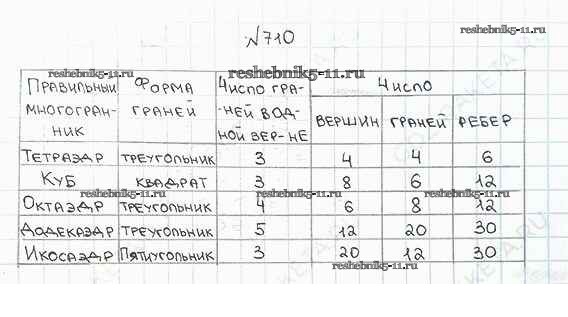 №710
reshebnik5-11.ru
reshebnik5-11.ru reshebnik5-11.ru
Правильный многогранник Форма граней Число граней в одной вер-не Число
вершин граней ребер
Тетраэдр треугольник 3 4 4 6
Куб квадрат 3 8 6 12
reshebnik5-11.ru reshebnik5-11.ru reshebnik5-11.ru
Октаэдр треугольник 4 6 8 12
Додекаэдр треугольник 5 12 20 30
Икосаэдр пятиугольник 3 20 12 30
reshebnik5-11.ru